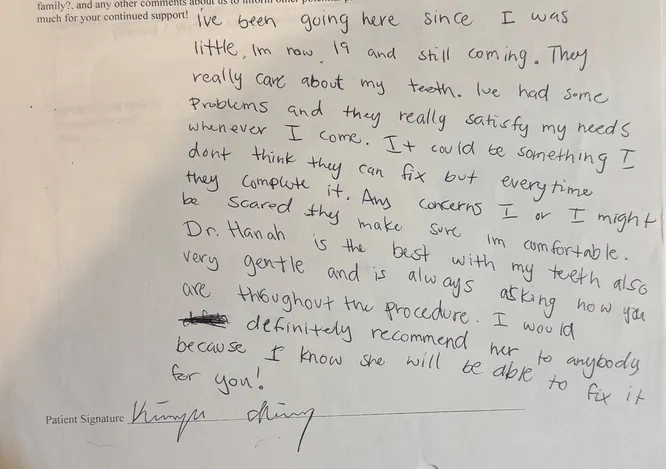 family?, and any other comments about us to inform other potential
much for your continued support!
I've been going here since I was
little, Im now 19 and still coming. They
really care about my teeth. Ive had some
problems and they really satisfy my needs
whenever I come. It could be something I
dont think they can fix but everytime
they complete it. Any concerns I or I might
be scared they make sure im comfortable.
Dr. Hanah is the best with my teeth also
very gentle and is always asking how you
are throughout the procedure. I would
definitely recommend her to anybody
because I know she will be able to fix it
for you!
Patient Signature